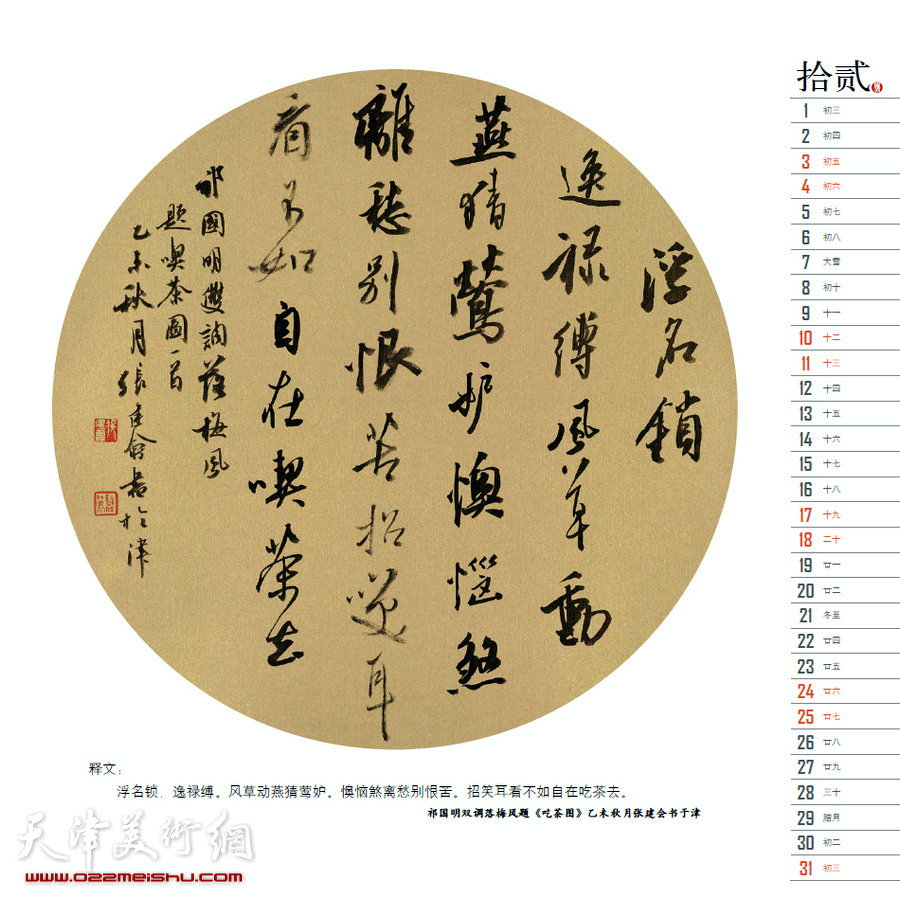 浮名鎖
逸禄縛風草動
燕猜鶯妒懊惱煞
離愁別恨苦招笑耳
看不如自在喫茶去
祁國明雙調落梅風
題喫茶圖一首
乙未秋月張建會書於津
拾贰
1 初三
2 初四
3 初五
4 初六
5 初七
6 初八
7 大雪
8 初十
9 十一
10 十二
11 十三
12 十四
13 十五
14 十六
15 十七
16 十八
17 十九
18 二十
19 廿一
20 廿二
21 冬至
22 廿四
23 廿五
24 廿六
25 廿七
26 廿八
27 廿九
28 三十
29 腊月
30 初二
31 初三
释文：
浮名锁、逸禄缚。风草动燕猜莺妒。懊恼煞离愁别恨苦。招笑耳看不如自在吃茶去。
祁国明双调落梅风题《吃茶图》乙未秋月张建会书于津
天津美術網
www.022meishu.com